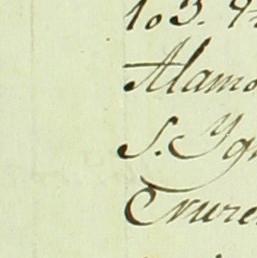 103. 
Alamo
S. Ygn
Cruze